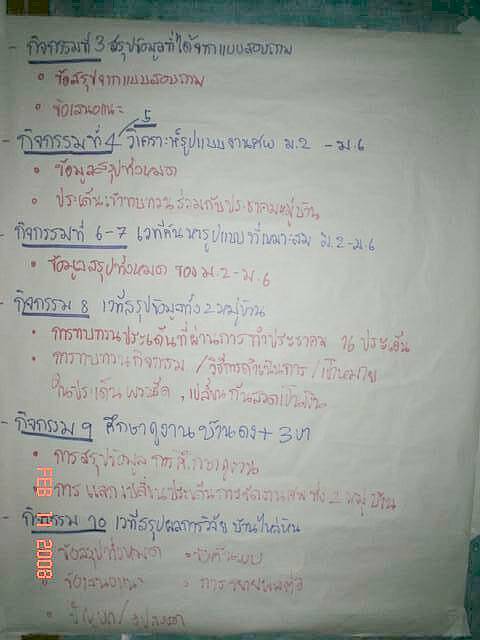 - กิจกรรมที่ 3 สรุปข้อมูลที่ได้จากแบบสอบถาม
• ข้อสรุปจากแบบสอบถาม
• ข้อเสนอแนะ
- กิจกรรมที่ 4/5 วิเคราะห์รูปแบบงานศพ ม.2 - ม.6
• ข้อมูลสรุปทั้งหมด
• ประเด็นเข้าทบทวนร่วมกับประชาคมหมู่บ้าน
- กิจกรรมที่ 6-7 เวทีค้นหารูปแบบที่เหมาะสม ม.2-ม.6
• ข้อมูลสรุปทั้งหมด ของ ม.2-ม.6
- กิจกรรม 8 เวทีสรุปข้อมูลทั้ง 2 หมู่บ้าน
• การทบทวนประเด็นที่ผ่านการทำประชาคม 16 ประเด็น
• การทบทวนกิจกรรม / วิธีการดำเนินการ / เป้าหมาย
ในประเด็น
- กิจกรรม 9 ศึกษาดูงานบ้านดง + 3 ขา
• การสรุปข้อมูลการศึกษาดูงาน
• การแลกเปลี่ยนประเด็นการจัดงานศพ ทั้ง 2 หมู่บ้าน
- กิจกรรม 10 เวทีสรุปผลการวิจัย บ้านใหล่หิน
• ข้อสรุปทั้งหมด
• ข้อเสนอแนะ • การขยายผลต่อ
• ปัญหา/อุปสรรค
FEB 11 2008